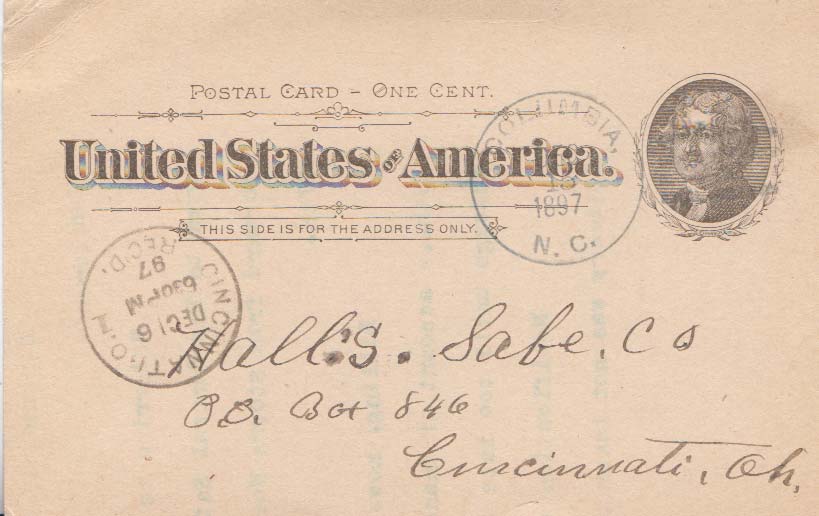 POSTAL CARD – ONE CENT.
United States OF America.
THIS SIDE IS FOR THE ADDRESS ONLY.
COLUMBIA,
1897
N. C.
CINCINNATI·O·
DEC 16
630PM
97
REC'D.
Hall's. Safe. Co
P.O. Box 846
Cincinnati, Oh,